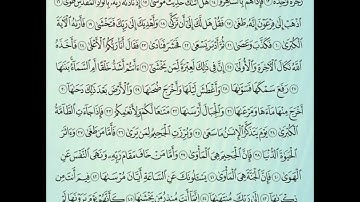 زَجْرَةٌ وَٰحِدَةٌ ١٣ فَإِذَا هُم بِٱلسَّاهِرَةِ ١٤ هَلْ أَتَىٰكَ حَدِيثُ مُوسَىٰٓ ١٥ إِذْ نَادَىٰهُ رَبُّهُۥ بِٱلْوَادِ ٱلْمُقَدَّسِ طُوًى ١٦
ٱذْهَبْ إِلَىٰ فِرْعَوْنَ إِنَّهُۥ طَغَىٰ ١٧ فَقُلْ هَل لَّكَ إِلَىٰٓ أَن تَزَكَّىٰ ١٨ وَأَهْدِيَكَ إِلَىٰ رَبِّكَ فَتَخْشَىٰ ١٩ فَأَرَىٰهُ ٱلْأٓيَةَ
ٱلْكُبْرَىٰ ٢٠ فَكَذَّبَ وَعَصَىٰ ٢١ ثُمَّ أَدْبَرَ يَسْعَىٰ ٢٢ فَحَشَرَ فَنَادَىٰ ٢٣ فَقَالَ أَنَا۠ رَبُّكُمُ ٱلْأَعْلَىٰ ٢٤ فَأَخَذَهُ
ٱللَّهُ نَكَالَ ٱلْأٓخِرَةِ وَٱلْأُولَىٰٓ ٢٥ إِنَّ فِى ذَٰلِكَ لَعِبْرَةً لِّمَن يَخْشَىٰٓ ٢٦ ءَأَنتُمْ أَشَدُّ خَلْقًا أَمِ ٱلسَّمَآءُ بَنَىٰهَا
٢٧ رَفَعَ سَمْكَهَا فَسَوَّىٰهَا ٢٨ وَأَغْطَشَ لَيْلَهَا وَأَخْرَجَ ضُحَىٰهَا ٢٩ وَٱلْأَرْضَ بَعْدَ ذَٰلِكَ دَحَىٰهَآ ٣٠
أَخْرَجَ مِنْهَا مَآءَهَا وَمَرْعَىٰهَا ٣١ وَٱلْجِبَالَ أَرْسَىٰهَا ٣٢ مَتَٰعًا لَّكُمْ وَلِأَنْعَٰمِكُمْ ٣٣ فَإِذَا جَآءَتِ ٱلطَّآمَّةُ
ٱلْكُبْرَىٰ ٣٤ يَوْمَ يَتَذَكَّرُ ٱلْإِنسَٰنُ مَا سَعَىٰ ٣٥ وَبُرِّزَتِ ٱلْجَحِيمُ لِمَن يَرَىٰ ٣٦ فَأَمَّا مَن طَغَىٰ ٣٧ وَءَاثَرَ
ٱلْحَيَوٰةَ ٱلدُّنْيَا ٣٨ فَإِنَّ ٱلْجَحِيمَ هِىَ ٱلْمَأْوَىٰ ٣٩ وَأَمَّا مَنْ خَافَ مَقَامَ رَبِّهِۦ وَنَهَى ٱلنَّفْسَ عَنِ
ٱلْهَوَىٰ ٤٠ فَإِنَّ ٱلْجَنَّةَ هِىَ ٱلْمَأْوَىٰ ٤١ يَسْـَٔلُونَكَ عَنِ ٱلسَّاعَةِ أَيَّانَ مُرْسَىٰهَا ٤٢ فِيمَ أَنتَ مِن
ذِكْرَىٰهَآ ٤٣ إِلَىٰ رَبِّكَ مُنتَهَىٰهَآ ٤٤ إِنَّمَآ أَنتَ مُنذِرُ مَن يَخْشَىٰهَا ٤٥ كَأَنَّهُمْ يَوْمَ يَرَوْنَهَا لَمْ